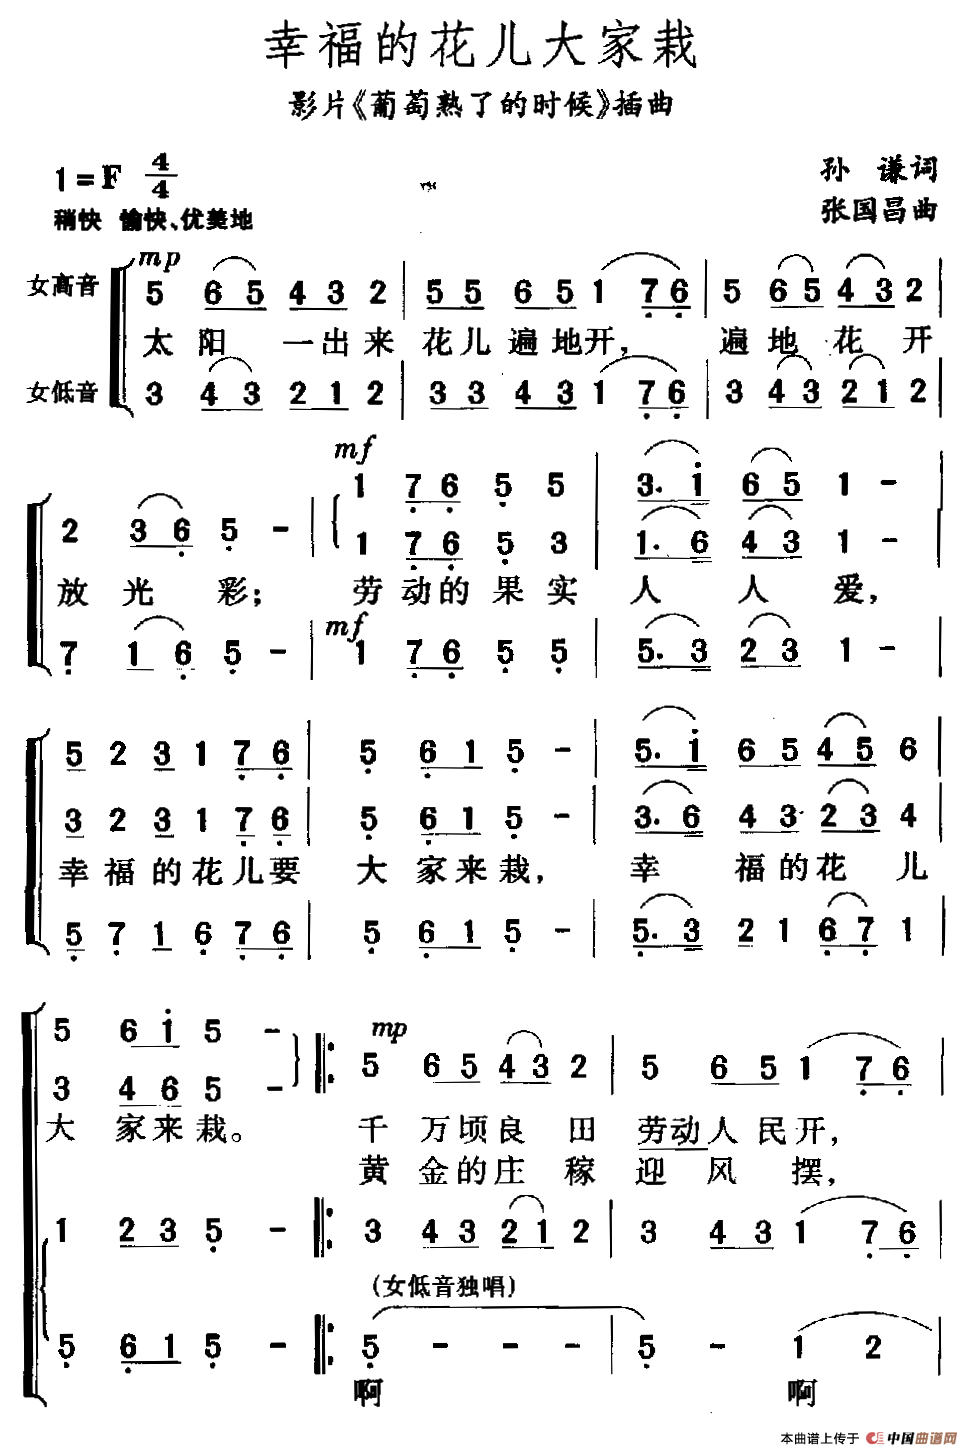 幸福的花儿大家栽
影片《葡萄熟了的时候》插曲
1=F 4/4
孙 谦词
稍快 愉快、优美地
张国昌曲
mp
女高音 5 6 5 4 3 2 | 5 5 6 5 1 7 6 | 5 6 5 4 3 2 |
太 阳 一出来 花儿遍地开, 遍 地 花 开
女低音 3 4 3 2 1 2 | 3 3 4 3 1 7 6 | 3 4 3 2 1 2 |
mf
1 7 6 5 5 | 3. i 6 5 1 - |
2 3 6 5 - | 1 7 6 5 3 | 1. 6 4 3 1 - |
放 光 彩; 劳动的果实 人 人 爱,
mf
7 1 6 5 - | 1 7 6 5 5 | 5. 3 2 3 1 - |
5 2 3 1 7 6 | 5 6 1 5 - | 5. i 6 5 4 5 6 |
3 2 3 1 7 6 | 5 6 1 5 - | 3. 6 4 3 2 3 4 |
幸福的花儿要 大 家来栽, 幸 福的花 儿
5 7 1 6 7 6 | 5 6 1 5 - | 5. 3 2 1 6 7 1 |
mp
5 6 i 5 - ‖: 5 6 5 4 3 2 | 5 6 5 1 7 6 |
3 4 6 5 -
大 家来栽。 千 万顷良 田 劳动人民开,
黄 金的庄 稼 迎 风 摆,
1 2 3 5 - ‖: 3 4 3 2 1 2 | 3 4 3 1 7 6 |
(女低音独唱)
5 6 1 5 - ‖: 5 - - - | 5 - 1 2 |
啊 啊
本曲谱上传于 中国曲谱网